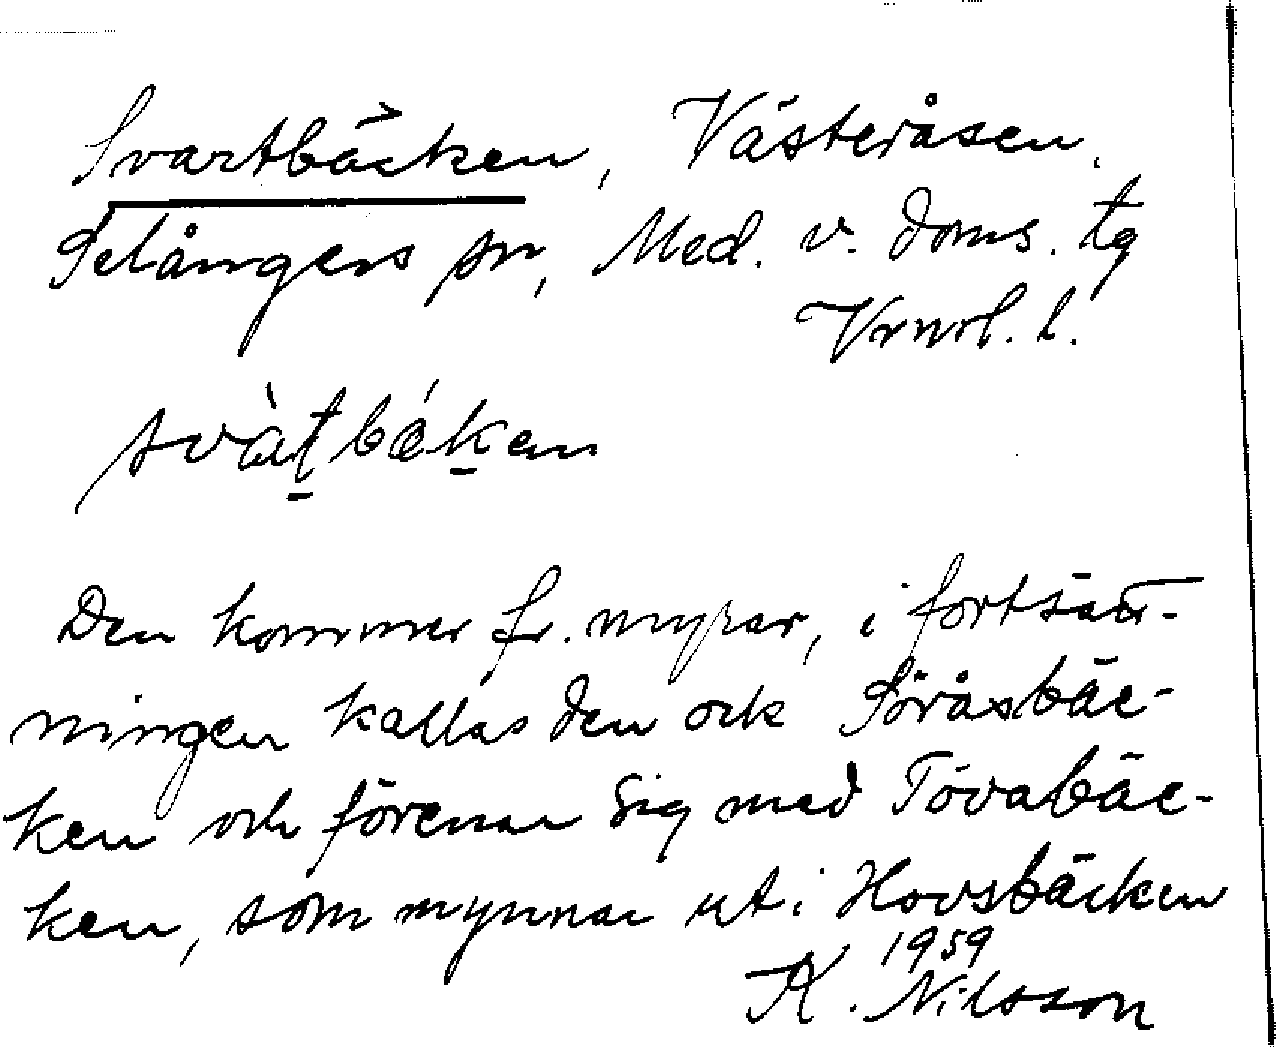 Svartbäcken, Västeråsen,
Selångers sn, Med. v. doms. tg
l.
svàt̠bák̠en
Den kommer fr. myrar, i fortsätt-
ningen kallas den och Söråsbäc-
ken och förenar sig med Tövabäc-
ken, som mynnar ut i Hovsbäcken
1959
K. Nilsson